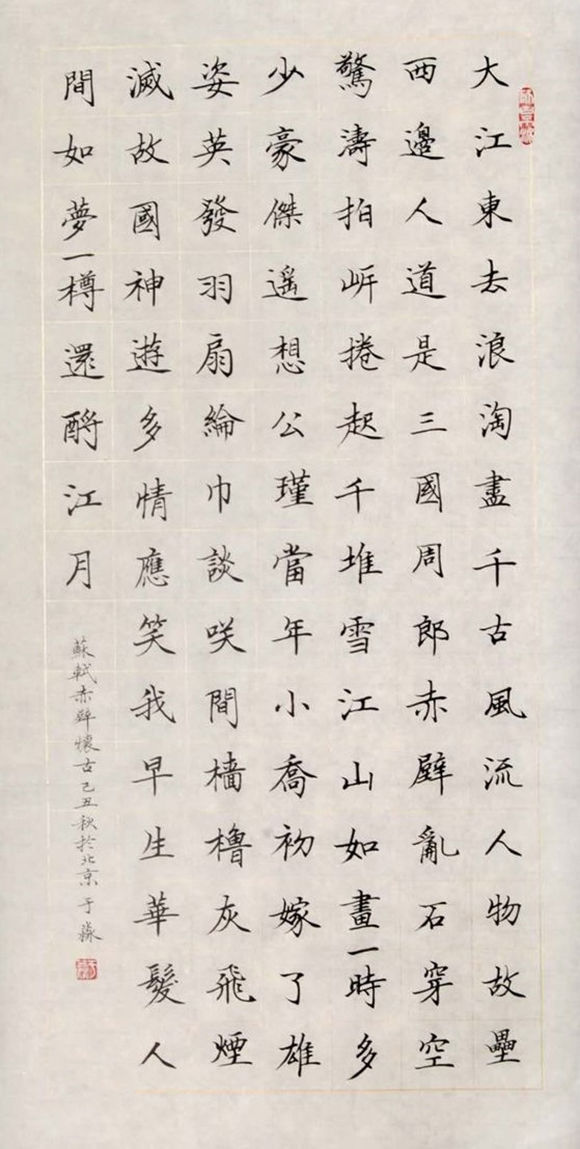 大江東去浪淘盡千古風流人物故壘
西邊人道是三國周郎赤壁亂石穿空
驚濤拍岍捲起千堆雪江山如畫一時多
少豪傑遥想公瑾當年小喬初嫁了雄
姿英發羽扇綸巾談咲間檣櫓灰飛煙
滅故國神遊多情應笑我早生華髮人
間如夢一樽還酹江月
蘇軾赤壁懷古己丑秋於北京于淼